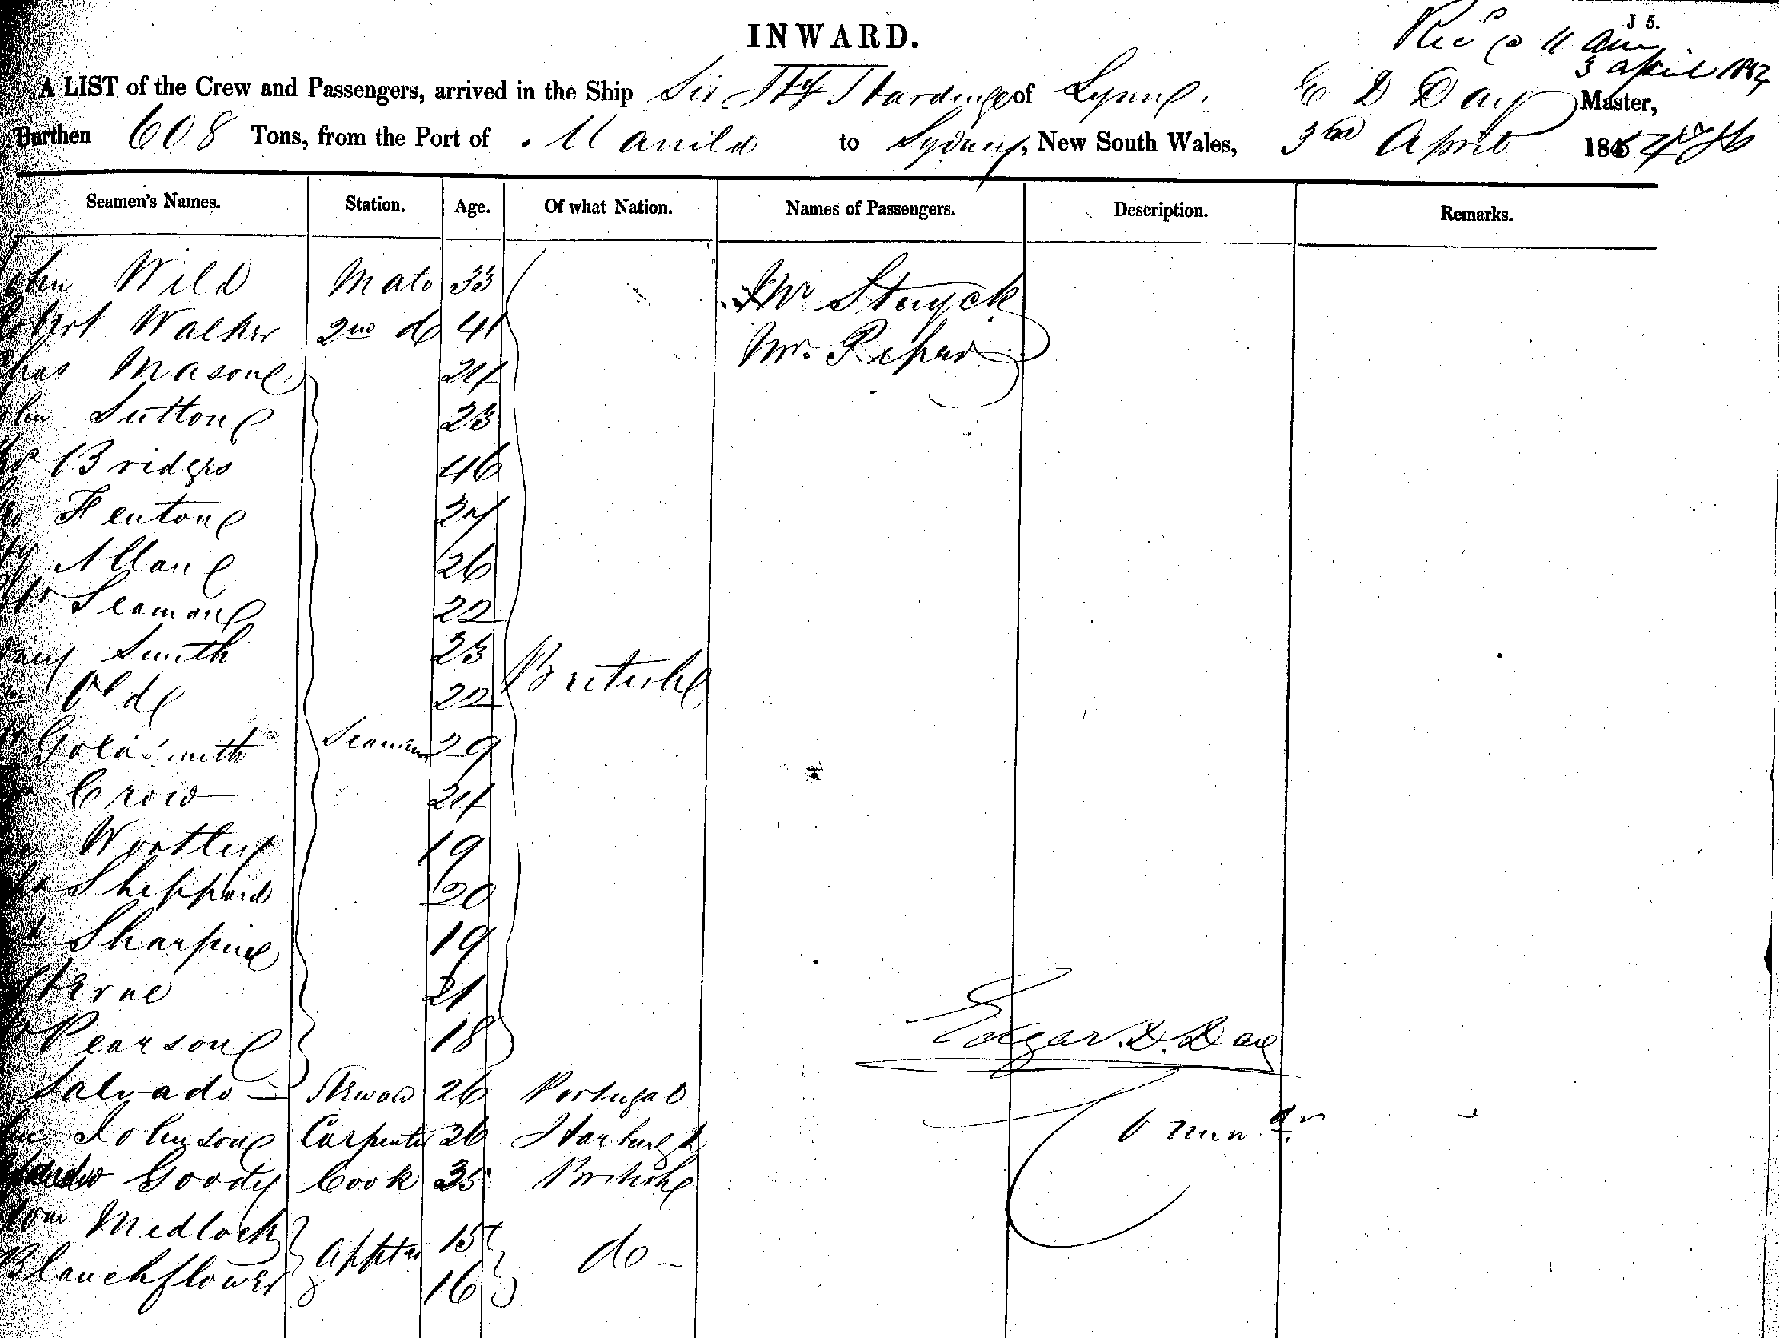 J 5.
INWARD.
11 am
3 April 1854
A LIST of the Crew and Passengers, arrived in the Ship Sir Hy Hardinge of Lynn, E D Day Master,
Burthen 608 Tons, from the Port of Manila to Sydney, New South Wales, 3rd April 185
Seamen's Names. Station. Age. Of what Nation. Names of Passengers. Description. Remarks.
John Wild Mate 33 Mr Stuyck
Robert Walker 2nd do 41 Mr
Chas Mason 24
John Sutton 23
Bridges 46
Fenton
Allan 26
Seaman 22
Smith 23
British
Old 22
Goldsmith Seaman 29
Crow 24
Wortley 19
Sheppard 20
Sharpin 19
Herne 21
Edgar. D. Day
Pearson 18
Salvado Steward 26 Portugal
Johnson Carpenter 26
Goody Cook 35 British
Tom Medlock Apptes 15 do
Blanchflower 16